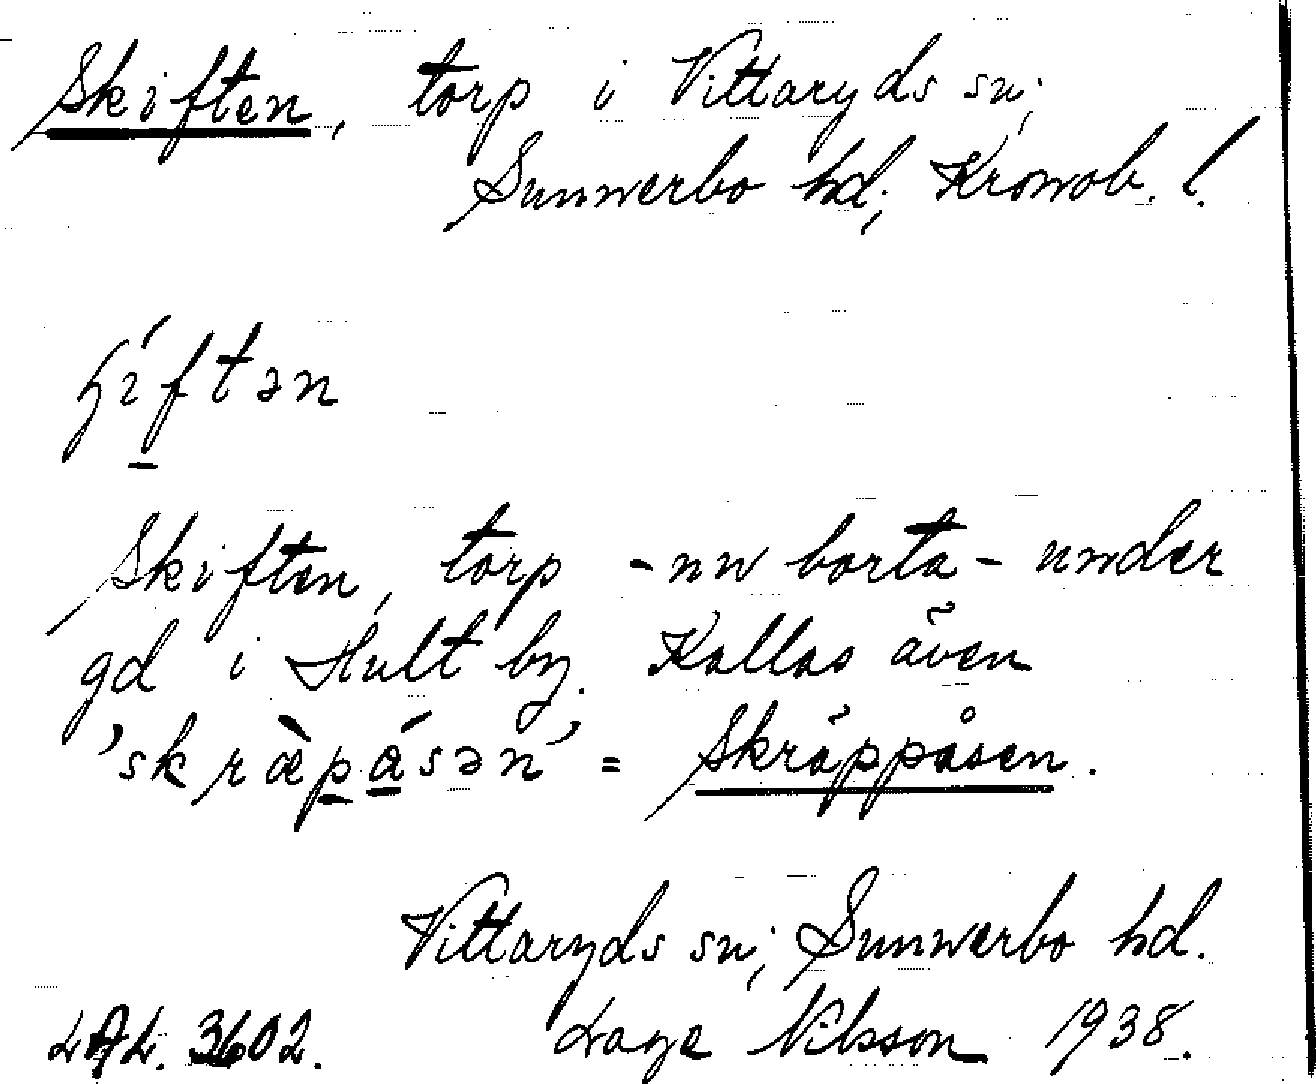 Skiften, torp i Vittaryds sn;
Sunnerbo hd; Kronob. l.
Skiften, torp - nu borta - under
gd i Hult by. Kallas även
= Skräppåsen.
Vittaryds sn; Sunnerbo hd.
LAL. 3602. Lage Nilsson 1938.